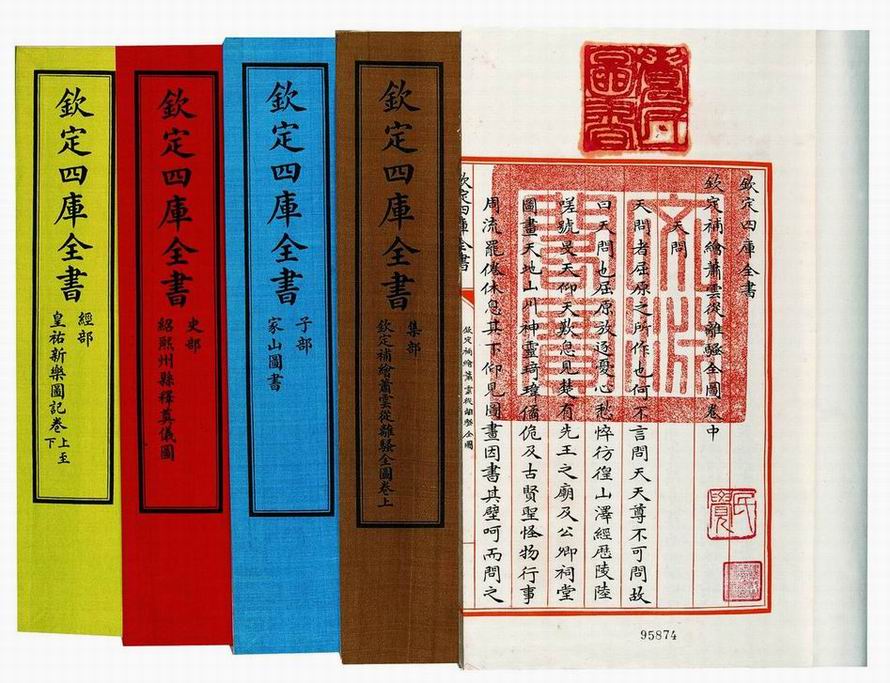 欽定四庫全書
經部
皇祐新樂圖記卷上至下
欽定四庫全書
史部
紹熙州縣釋奠儀圖
欽定四庫全書
子部
家山圖書
欽定四庫全書
集部
欽定補繪蕭雲從離騷全圖卷上
欽定四庫全書
欽定補繪蕭雲從離騷全圖卷中
天問
天問者屈原之所作也何不言問天天尊不可問故
曰天問也屈原放逐憂心愁悴彷徨山澤經歷陵陸
嗟號旻天仰天歎息見楚有先王之廟及公卿祠堂
圖畫天地山川神靈琦瑋僪佹及古賢聖怪物行事
周流罷倦休息其下仰見圖畫因書其壁呵而問之
欽定四庫全書
欽定補繪蕭雲從離騷全圖
95874